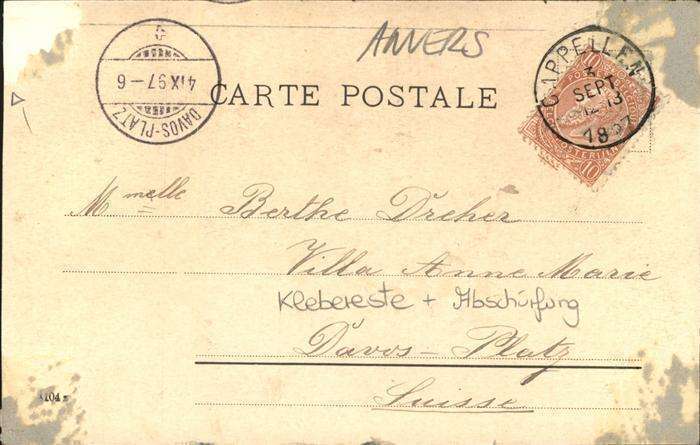 ANVERS
DAVOS-PLATZ
4 IX 97-6
CARTE POSTALE
CAPPELLEN
SEPT.
12-13
1897
10
10
Mmelle Berthe Dreher
Villa Anne Marie
Klebereste + Abschürfung
Davos-Platz
Suisse